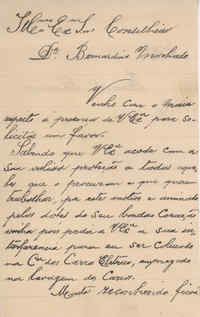 Illmo e Exmo Sr. Conselheiro
Dr. Bernardino Machado
Venho com o maior
respeito á presença de VExa para so-
licitar um favor.
Sabendo que VExa acode com a
sua valiosa protecção a todos aquel-
les que o procuram e que querem
trabalhar, por este motivo e animado
pelos dotes do seu bondoso Coração
venho pois pedir a VExa a sua in-
terferencia para eu ser colocado
na Ca dos Carros Eletricos, empregado
na lavagem de Carros.
Muito reconhecido fica